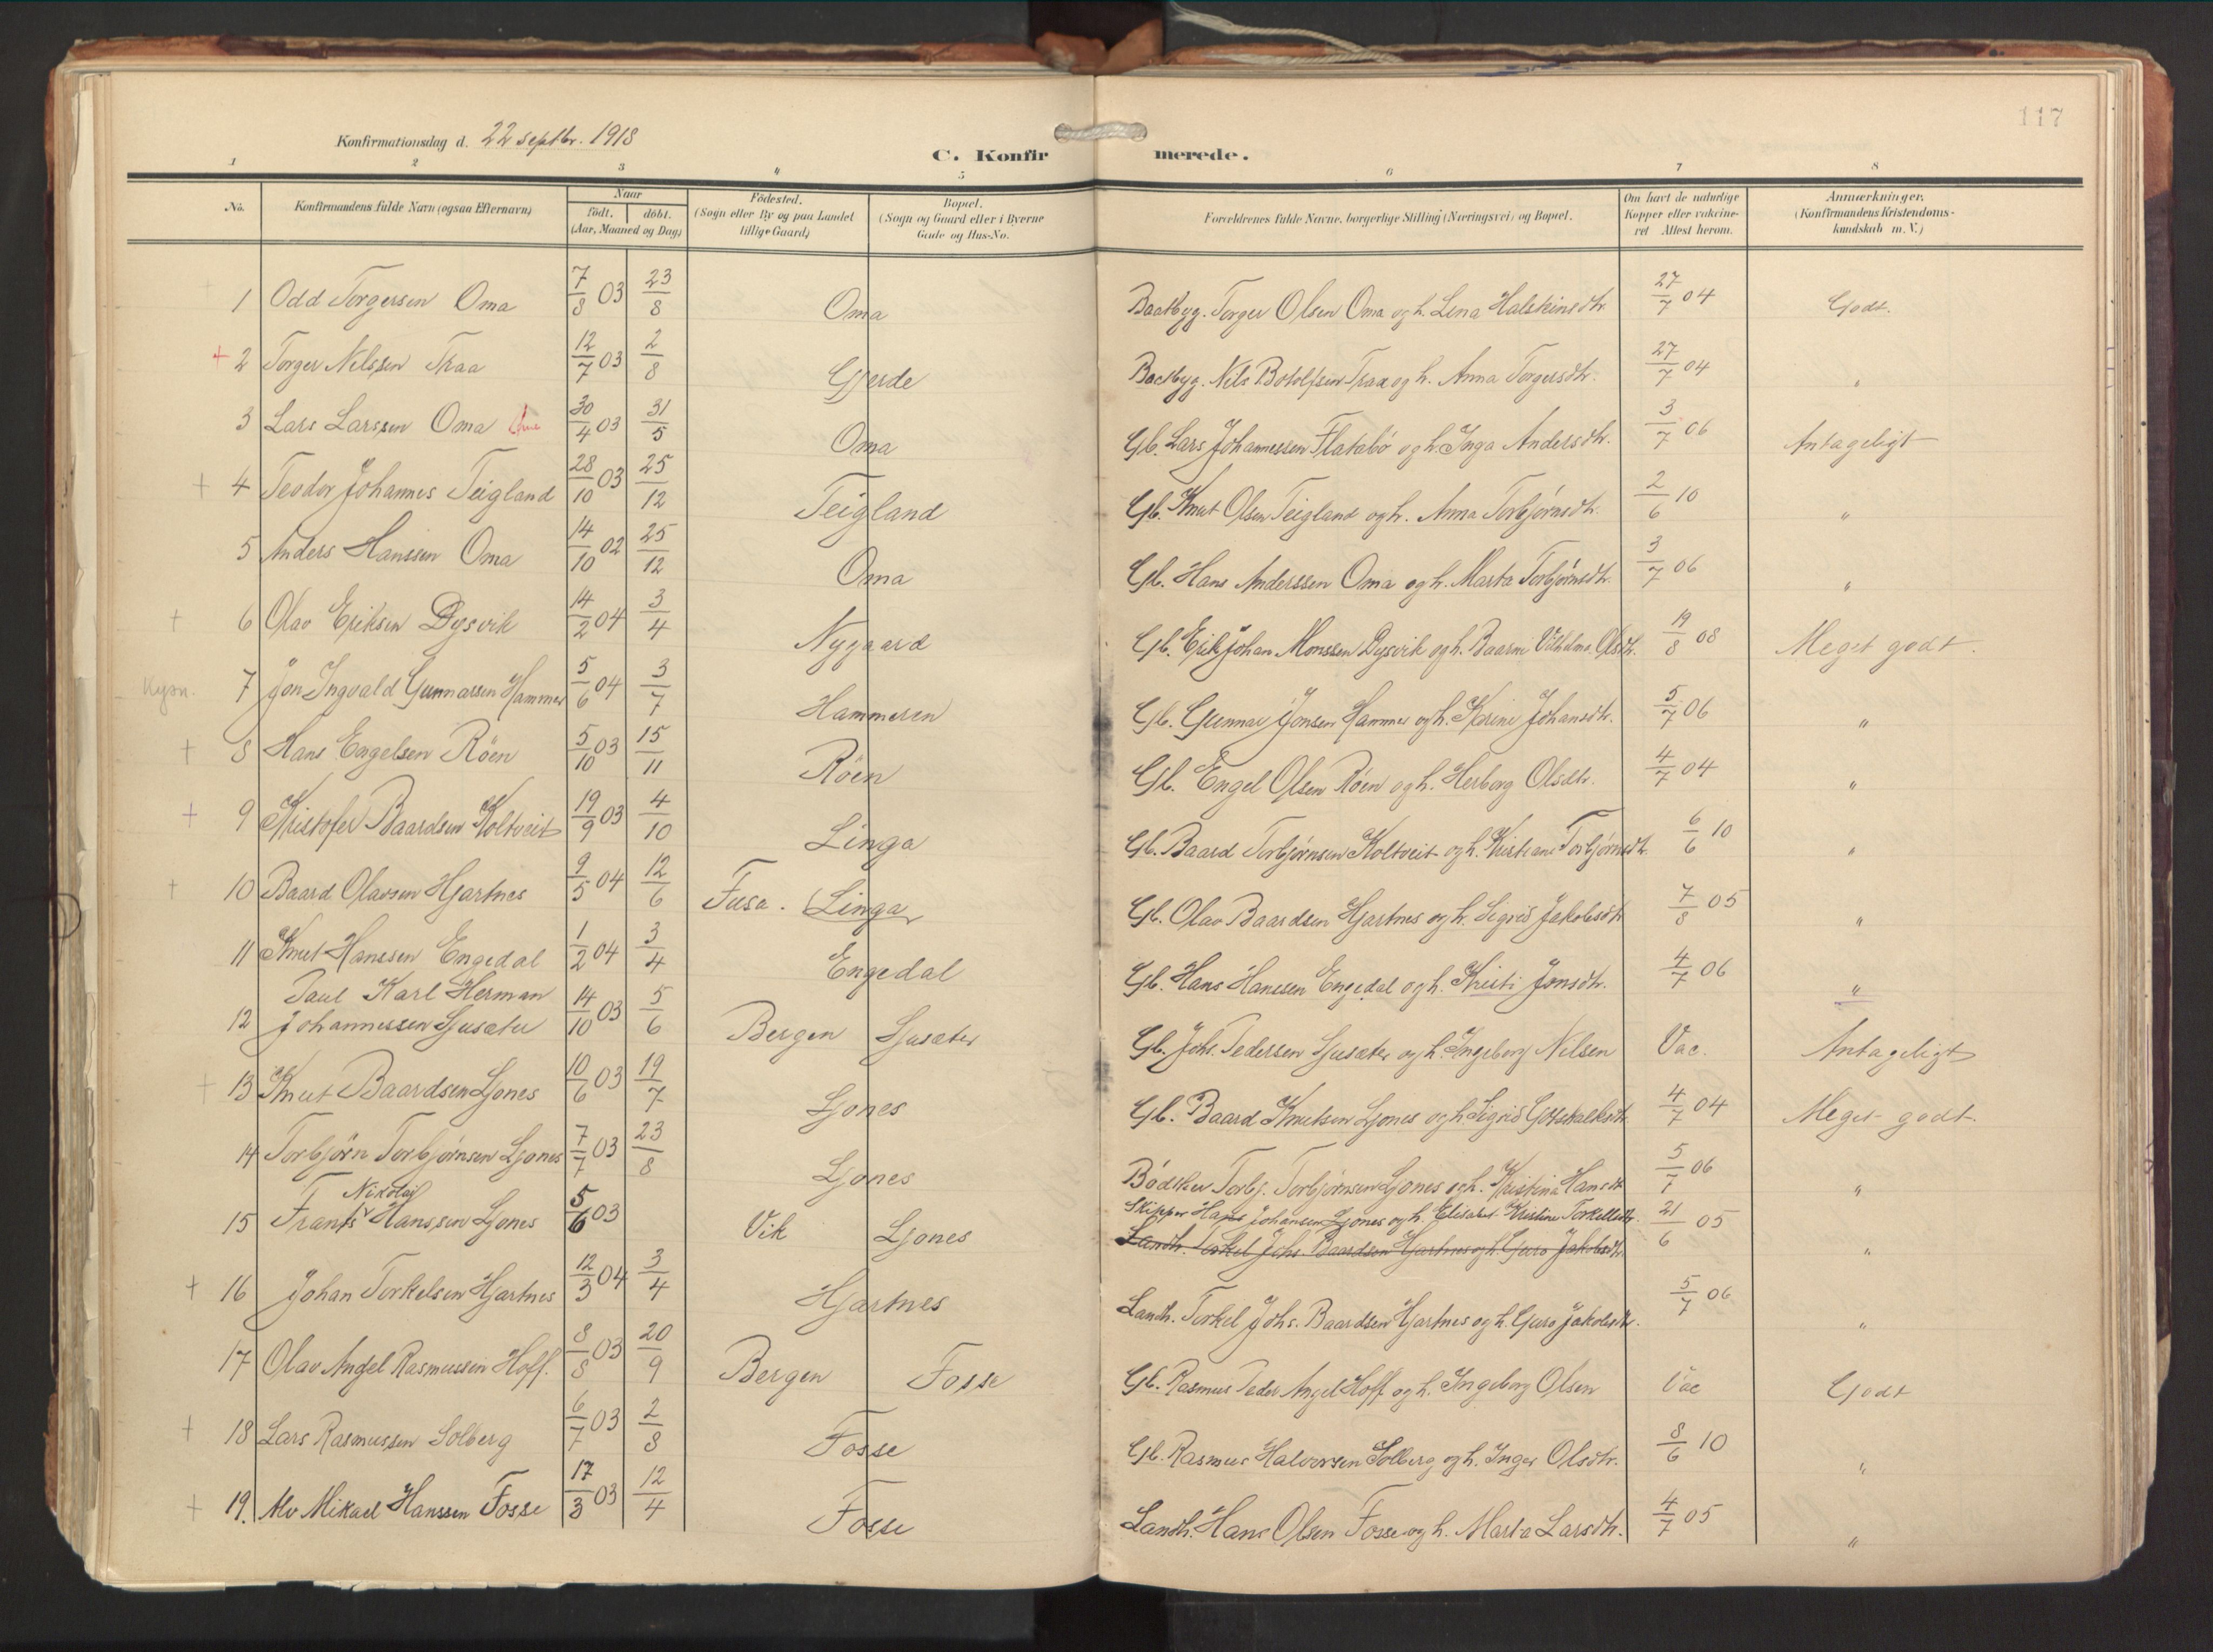 117
Konfirmationsdag d. 22 septbr. 1918
C. Konfirmerede.
1 2 3 4 5 6 7 8
No. Konfirmandens fulde Navn (ogsaa Efternavn) Naar født. døbt. (Aar, Maaned og Dag) Födested. (Sogn eller By og paa Landet tillige Gaard) Bopæl. (Sogn og Gaard eller i Byerne Gade og Hus-No. Forældrenes fulde Navne, borgerlige Stilling (Næringsvei) og Bopæl. Om havt de naturlige Kopper eller vakcineret Attest herom. Anmærkninger. (Konfirmandens Kristendomskundskab m. V.)
1 Odd Torgersen Oma 7/8 03 23/8 Oma Baatbyg. Torger Olsen Oma og h. Lena Halsteinsdtr. 27/7 04 Godt.
+ 2 Torger Nilssen Traa 12/7 03 2/8 Gjerde Baatbyg. Nils Botolfsen Traa og h. Anna Torgersdtr. 27/7 04 "
3 Lars Larssen Oma 30/4 03 31/5 Oma Gb. Lars Johannessen Flatabø og h. Inga Andersdtr. 3/7 06 Antageligt
+ 4 Teodor Johannes Teigland 28/10 03 25/12 Teigland Gb. Knut Olsen Teigland og h. Anna Torbjørnsdtr. 2/6 10 "
5 Anders Hanssen Oma 14/10 02 25/12 Oma Gb. Hans Anderssen Oma og h. Marta Torbjørnsdtr. 3/7 06 "
+ 6 Olav Eriksen Dysvik 14/2 04 3/4 Nygaard Gb. Erik Johan Monssen Dysvik og h. Baarni Vilhelma Olsdtr. 19/8 08 Meget godt.
Kysn. 7 Jon Ingvald Gunnarsen Hammer 5/6 04 3/7 Hammeren Gb. Gunnar Jonsen Hammer og h. Karine Johansdtr. 5/7 06 "
+ 8 Hans Engelsen Röen 5/10 03 15/11 Röen Gb. Engel Olsen Röen og h. Herborg Olsdtr. 4/7 04 "
+ 9 Kristofer Baardsen Koltveit 19/9 03 4/10 Linga Gb. Baard Torbjørnsen Koltveit og h. Kristiane Torbjørnsdtr. 6/6 10 "
+ 10 Baard Olavsen Hjartnes 9/5 04 12/6 Fusa. Linga Gb. Olav Baardsen Hjartnes og h. Sigrid Jakobsdtr 7/8 05 "
11 Knut Hanssen Engedal 1/2 04 3/4 Engedal Gb. Hans Hanssen Engedal og h. Kristi Jonsdtr. 4/7 06 "
Paul Karl Herman
12 Johannessen Ljusæter 14/10 03 5/6 Bergen Ljusæter Gb. Johs. Pedersen Ljusæter og h. Ingeborg Nilsen Vac. Antageligt
+ 13 Knut Baardsen Ljones 10/6 03 19/7 Ljones Gb. Baard Knutsen Ljones og h. Sigrid Gotskalksdtr. 4/7 04 Meget godt.
14 Torbjörn Torbjørnsen Ljones 7/7 03 23/8 Ljones Bødtker Torbj. Torbjørnsen Ljones og h. Kristina Hansdtr 5/7 06 "
Nikolai
15 Frants Hanssen Ljones 5/6 03 Vik Ljones Skipper Hans Johansen Ljones og h. Elisabet Kristine Torkellsdtr. 21/6 05 "
Landh. Torkel Johs. Baardsen Hjartnes og h. Guro Jakobsdtr.
+ 16 Johan Torkelsen Hjartnes 12/3 04 3/4 Hjartnes Landh. Torkel Johs. Baardsen Hjartnes og h. Guro Jakobsdtr. 5/7 06 "
17 Olav Angel Rasmussen Hoff. 8/8 03 20/9 Bergen Fosse Gb. Rasmus Peder Angel Hoff og h. Ingeborg Olsen Vac Godt
+ 18 Lars Rasmussen Solberg 6/7 03 2/8 Fosse Gb. Rasmus Halvorsen Solberg og h. Inger Olsdtr. 8/6 10 "
+ 19. Alv Mikael Hanssen Fosse 17/3 03 12/4 Fosse Landh. Hans Olsen Fosse og h. Marta Larsdtr. 4/7 05 "